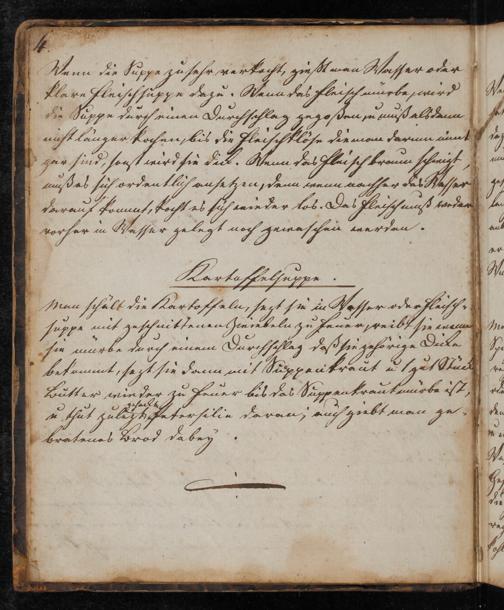 4.
Wenn die Suppe zu sehr verkocht, gießt man Wasser oder
klare Fleischsuppe dazu. Wenn das Fleisch mürbe, wird
die Suppe durch einen Durchschlag gegoßen, u muß alsdann
nicht länger kochen, bis die Fleischklöße die man darinn
gar sind, sonst wird sie dick. Wenn das Fleisch braun schmort,
muß es sich ordentlich ansetzen, denn wenn nachher das Wasser
darauf kommt, kocht es sich wieder los. Das Fleisch muß weder
vorher in Wasser gelegt noch gewaschen werden.
Kartoffelsuppe.
Man schält die Kartoffeln, sezt sie in Wasser oder Fleisch-
suppe mit geschnittenen Zwiebeln zu Feuer, reibt sie wenn
sie mürbe durch einen Durchschlag daß sie gehörige Dicke
bekommt, sezt sie dann mit Suppenkraut u 1 gut Stück
Butter wieder zu Feuer bis das Suppenkraut mürbe ist,
u thut zulezt Petersilie daran; auch giebt man ge-
bratenes Brod dabey.